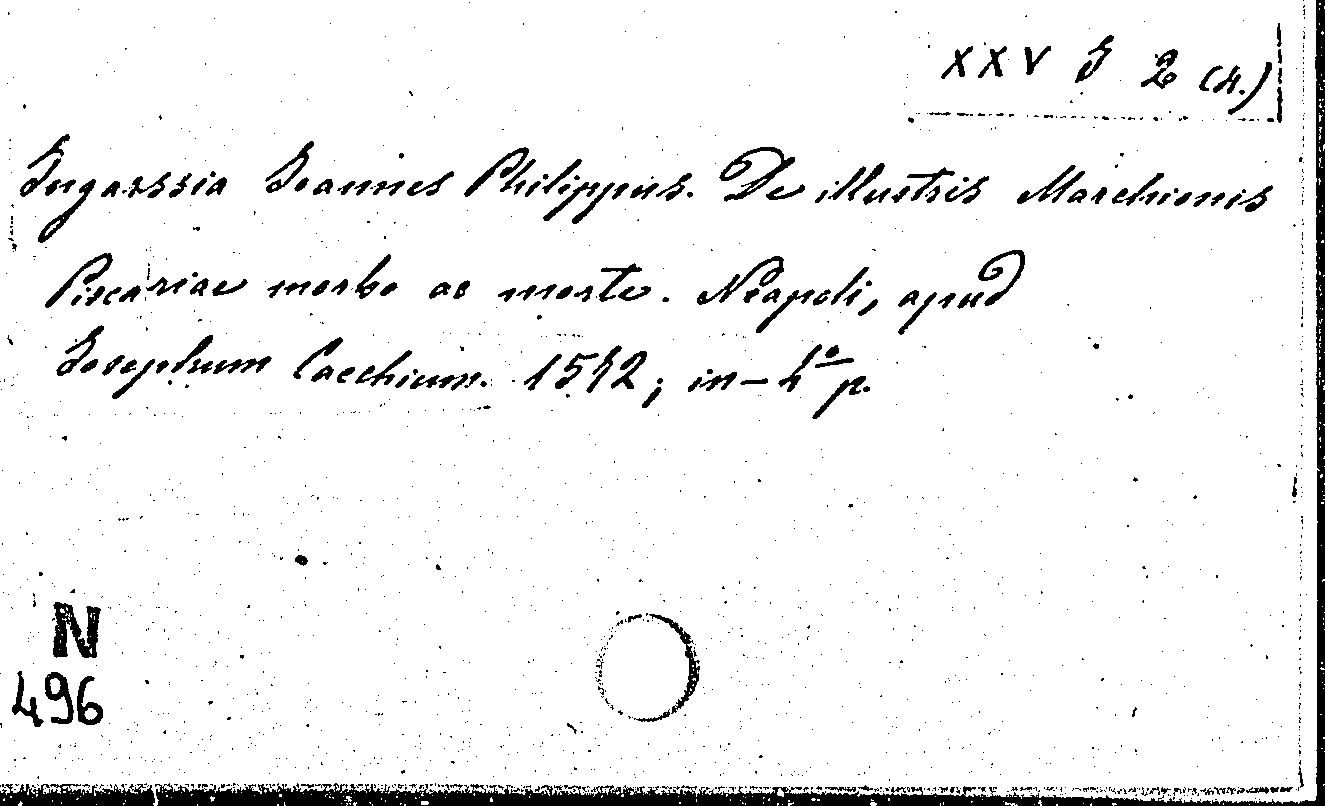 XXV I 2 (4.)
Ingarssia Ioannes Philippus. De illustris Marchionis
Piscariae morbo ac morte. Neapoli, apud
Iosephum Cacchium. 1542; in-4º p.
N
496